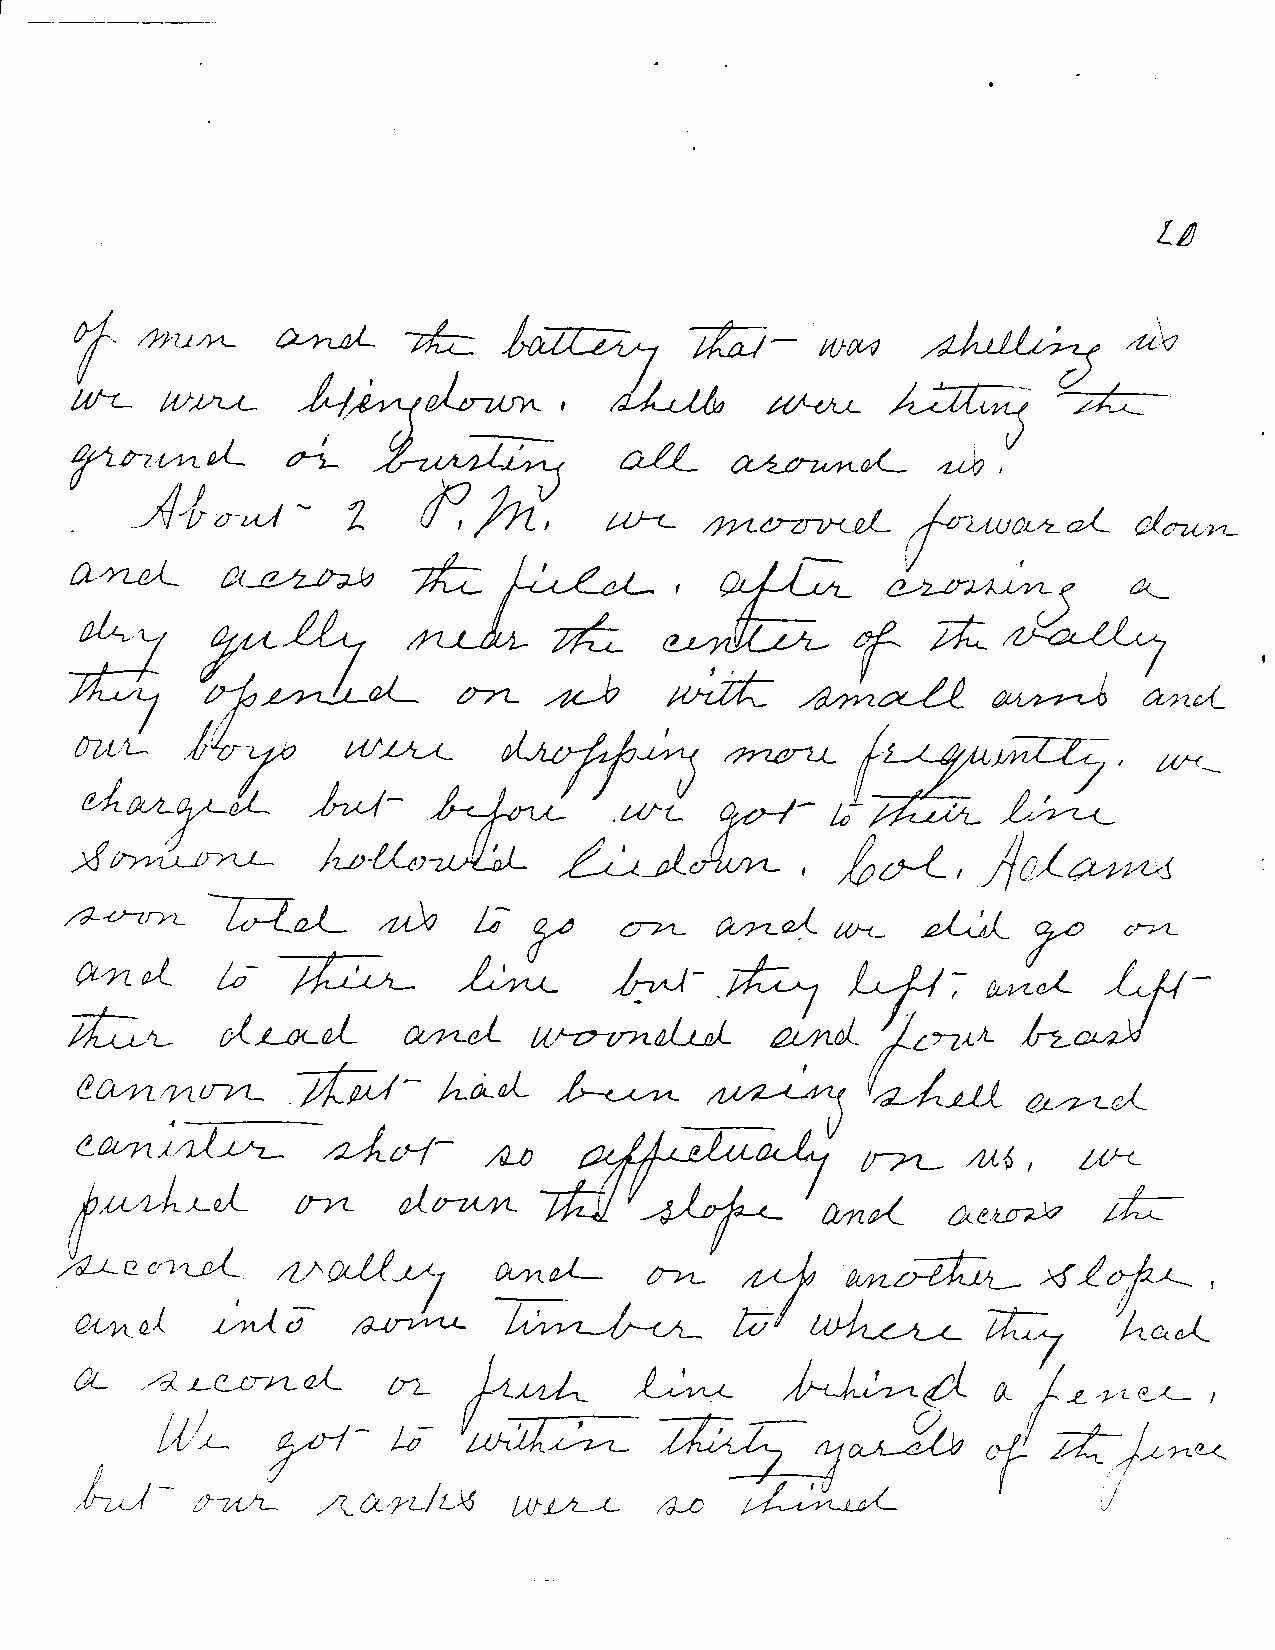 of men and the battery that was shelling us
we were lyingdown, shells were hitting the
ground or bursting all around us.
About 2 P.M. we mooved forward down
and across the field, after crossing a
dry gully near the center of the valley
they opened on us with small arms and
our boys were dropping more frequintly, we
charged but before we got to their line
someone hollowed liedown, Col. Adams
soon told us to go on and we did go on
and to thier line but they left, and left
thier dead and woonded and four brass
cannon that had been using shell and
canister shot so affectualy on us, we
pushed on down this slope and across the
second valley and on up another slope,
and into some timber to where they had
a second or fresh line behind a fence,
We got to within thirty yards of the fence
but our ranks were so thined